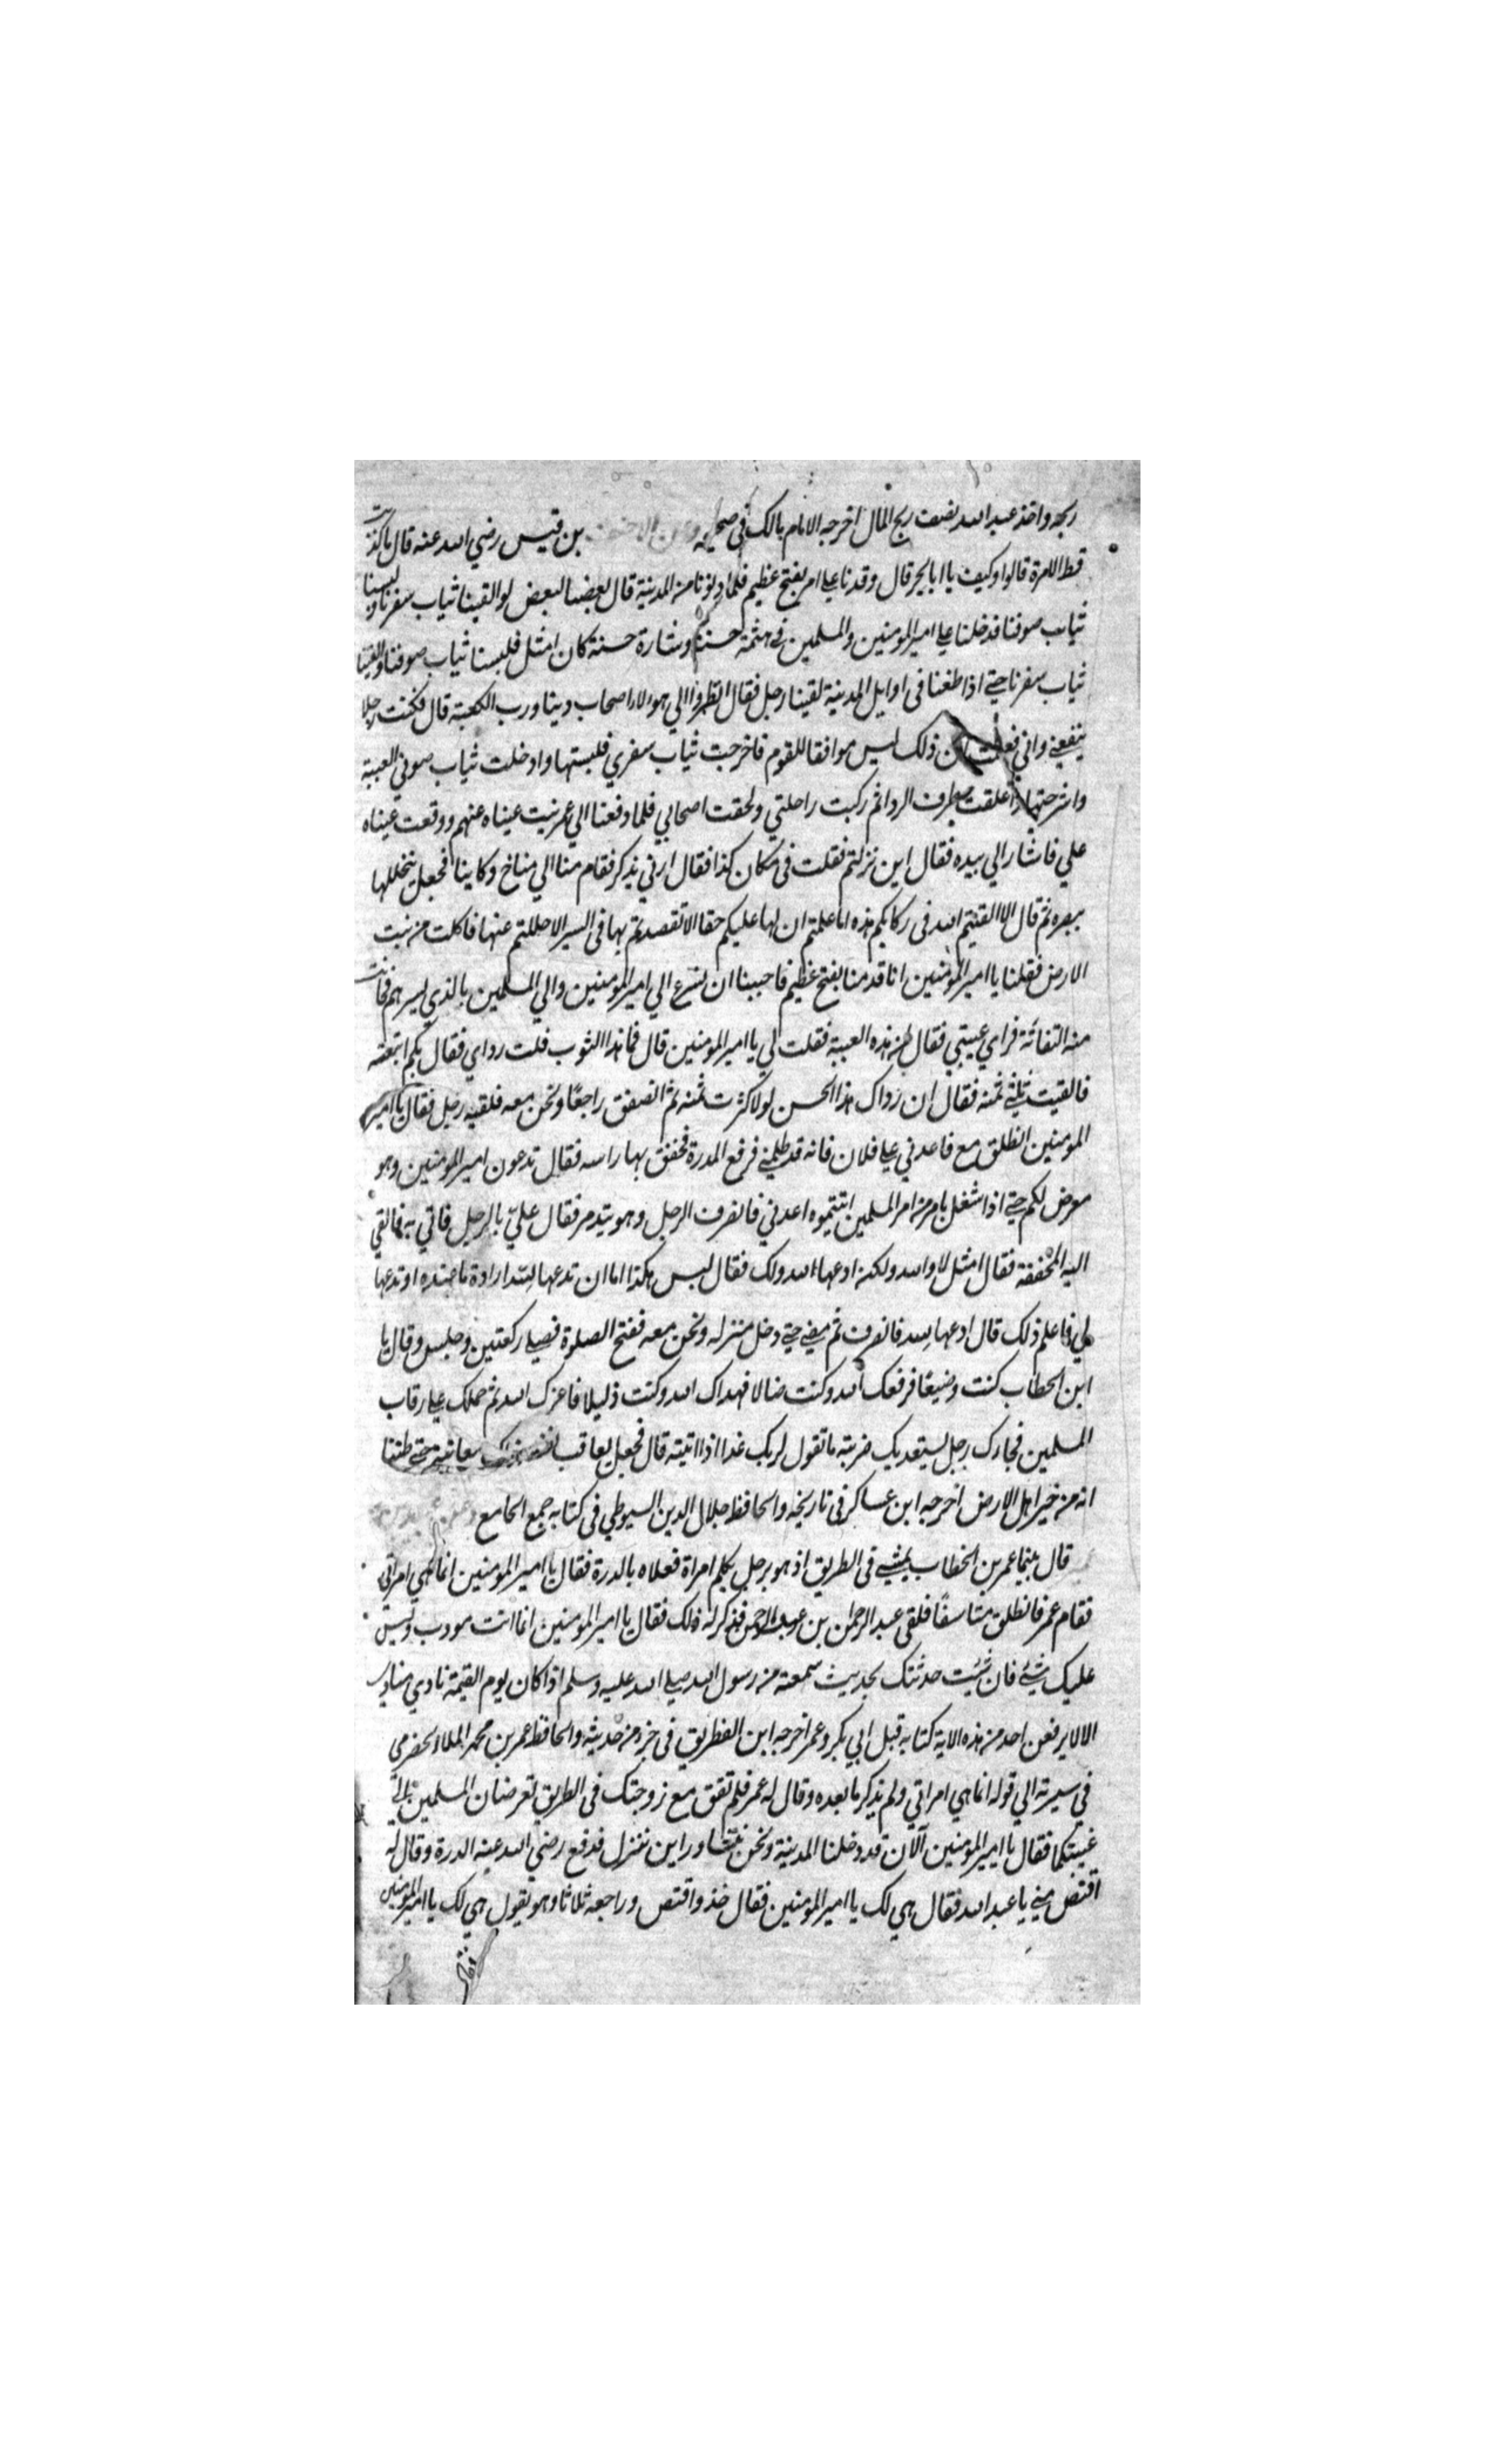 ربحه واخذ عبد الله نصف ربح المال اخرجه الامام مالك في صحيحه وعن الاحنف بن قيس رضي الله عنه قال ما كذبت
قط الا مرة قالوا وكيف يا ابا بحر قال وفدنا علي عمر بفتح عظيم فلما دنونا من المدينة قال بعضنا لبعض لو القينا ثياب سفرنا ولبسنا
ثياب صوننا فدخلنا علي امير المومنين والمسلمين في هئية حسنة وشارة حسنة كان امثل فلبسنا ثياب صوننا والقينا
ثياب سفرنا حتي اذا طعنا في اوايل المدينة لقينا رجل فقال انظروا الي هولاء اصحاب دينا ورب الكعبة قال فكنت رجلا
ينفعني واني فعلمت ان ذلك ليس موافقا للقوم فاخرجت ثياب سفري فلبستها وادخلت ثياب صوني العيبة
واشرجتها واعلقت بطرف الردا ثم ركبت راحلتي ولحقت اصحابي فلما دفعنا الي عمر نبت عيناه عنهم ووقعت عيناه
علي فاشار الي بيده فقال اين نزلتم فقلت في مكان كذا فقال ارني يدك فقام منا الي مناخ ركابنا فجعل يتخللها
ببصره ثم قال الا القيتم الله في ركابكم هذه اما علمتم ان لها عليكم حقا الا تقصدتم بها في السير الا حللتم عنها فاكلت من نبت
الارض فقلنا يا امير المومنين انا قدمنا بفتح عظيم فاحببنا ان نسرع الي امير المومنين والي المسلمين بالذي يسرهم فحانت
منه التفاتة فراي عيبتي فقال لمن هذه العيبة فقلت لي يا امير المومنين قال فما هذا الثوب قلت رداي فقال بكم ابتعته
فالقيت ثلثي ثمنه فقال ان رداك هذا الحسن لولا كثرت ثمنه ثم انصفق راجعا ونحن معه فلقيه رجل فقال يا امير
المومنين انطلق مع فاعدني علي فلان فانه قد ظلمني فرفع الدرة فخفق بها راسه فقال تدعون امير المومنين وهو
معرض لكم حتي اذا شغل بامر من امر المسلمين اتيتموه اعدني فانصرف الرجل وهو يتذمر فقال علي بالرجل فاتي به فالقي
اليه المخفقة فقال امثل لا والله ولكن ادعها لله ولك فقال ليس هكذا اما ان تدعها لله ارادة ما عنده او تدعها
لي فاعلم ذلك قال ادعها لله فانصرف ثم مضي حتي دخل منزله ونحن معه ففتح الصلوة فصلي ركعتين وجلس وقال يا
ابن الخطاب كنت وضيعا فرفعك الله وكنت ضالا فهداك الله وكنت ذليلا فاعزك الله ثم حملك علي رقاب
المسلمين فجاءك رجل يستعديك ضربته ما تقول لربك غدا اذا اتيته قال فجعل يعاتب نفسه معاتبة حتي ظننا
انه من خير اهل الارض اخرجه ابن عساكر في تاريخه والحافظ جلال الدين السيوطي في كتابه جمع الجامع
قال بينما عمر بن الخطاب يمشي في الطريق اذ هو برجل يكلم امراة فعلاه بالدرة فقال يا امير المومنين انما هي امراتي
فقام عمر فانطلق متاسفا فلقي عبد الرحمان بن عوف فذكر له ذلك فقال يا امير المومنين انما انت مودب وليس
عليك شئ فان شئت حدثتك بحديث سمعته من رسول الله صلي الله عليه وسلم اذا كان يوم القيمة نادي مناد
الا لا يرفعن احد من هذه الامة كتابه قبل ابي بكر وعمر اخرجه ابن الغطريف في جزء من حديثه والحافظ عمر بن محمد الملا الحضرمي
في سيرته الي قوله انما هي امراتي ولم يذكر ما بعده وقال له عمر فلم تقف مع زوجتك في الطريق تعرضان المسلمين الي
غيبتكما فقال يا امير المومنين الان قد دخلنا المدينة ونحن نتشاور اين ننزل فدفع رضي الله عنه الدرة وقال له
اقتص مني يا عبد الله فقال هي لك يا امير المومنين فقال خذ واقتص وراجعه ثلاثا وهو يقول هي لك يا امير المومنين